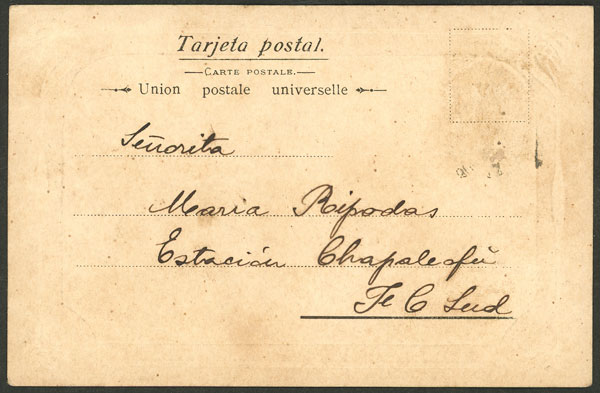 Tarjeta postal.
CARTE POSTALE.
Union postale universelle
Señorita
Maria Ripodas
Estación Chapaleofú
Fe C Sud